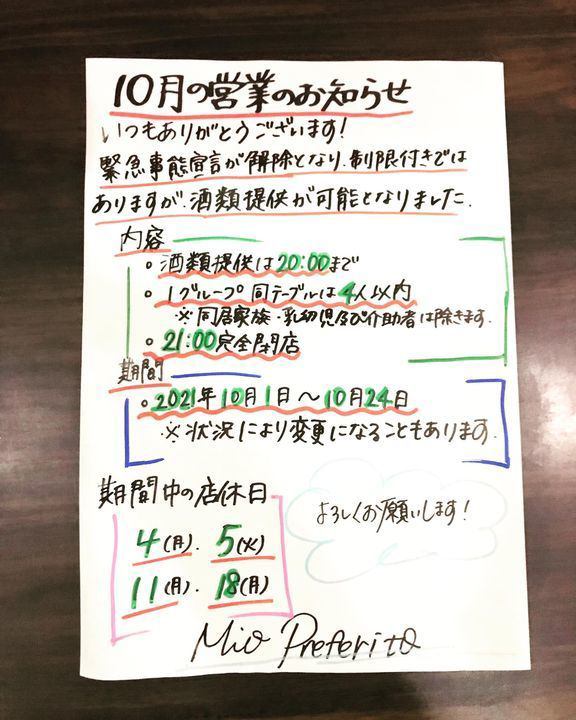 10月の営業のお知らせ
いつもありがとうございます!
緊急事態宣言が解除となり、制限付きでは
ありますが、酒類提供が可能となりました。
内容
○ 酒類提供は20:00まで
○ 1グループ同テーブルは4人以内
※同居家族・乳幼児及び介助者は除きます。
○ 21:00完全閉店
期間
○ 2021年10月1日~10月24日
※状況により変更になることもあります。
期間中の店休日
4(月)、5(火)
11(月)、18(月)
よろしくお願いします!
Mio Preferito